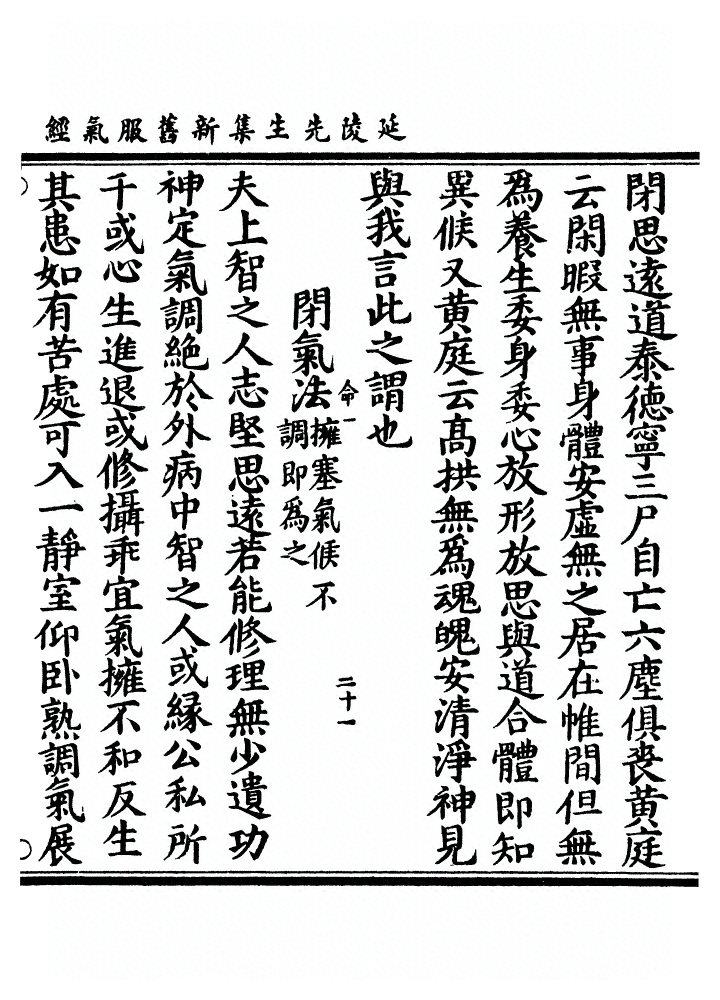 延陵先生集新舊服氣經
閉思遠道泰德寧三尸自亡六塵俱喪黄庭
云閑暇無事身體安虚無之居在帷間但無
為養生委身委心放形放思與道合體即知
異候又黄庭云髙拱無為魂魄安清淨神見
與我言此之謂也
命一
二十一
閉氣法擁塞氣候不
調即為之
夫上智之人志堅思遠若能修理無少遺功
神定氣調絶於外病中智之人或縁公私所
千或心生進退或修攝乖宜氣擁不和反生
其患如有苦處可入一靜室仰卧熟調氣展